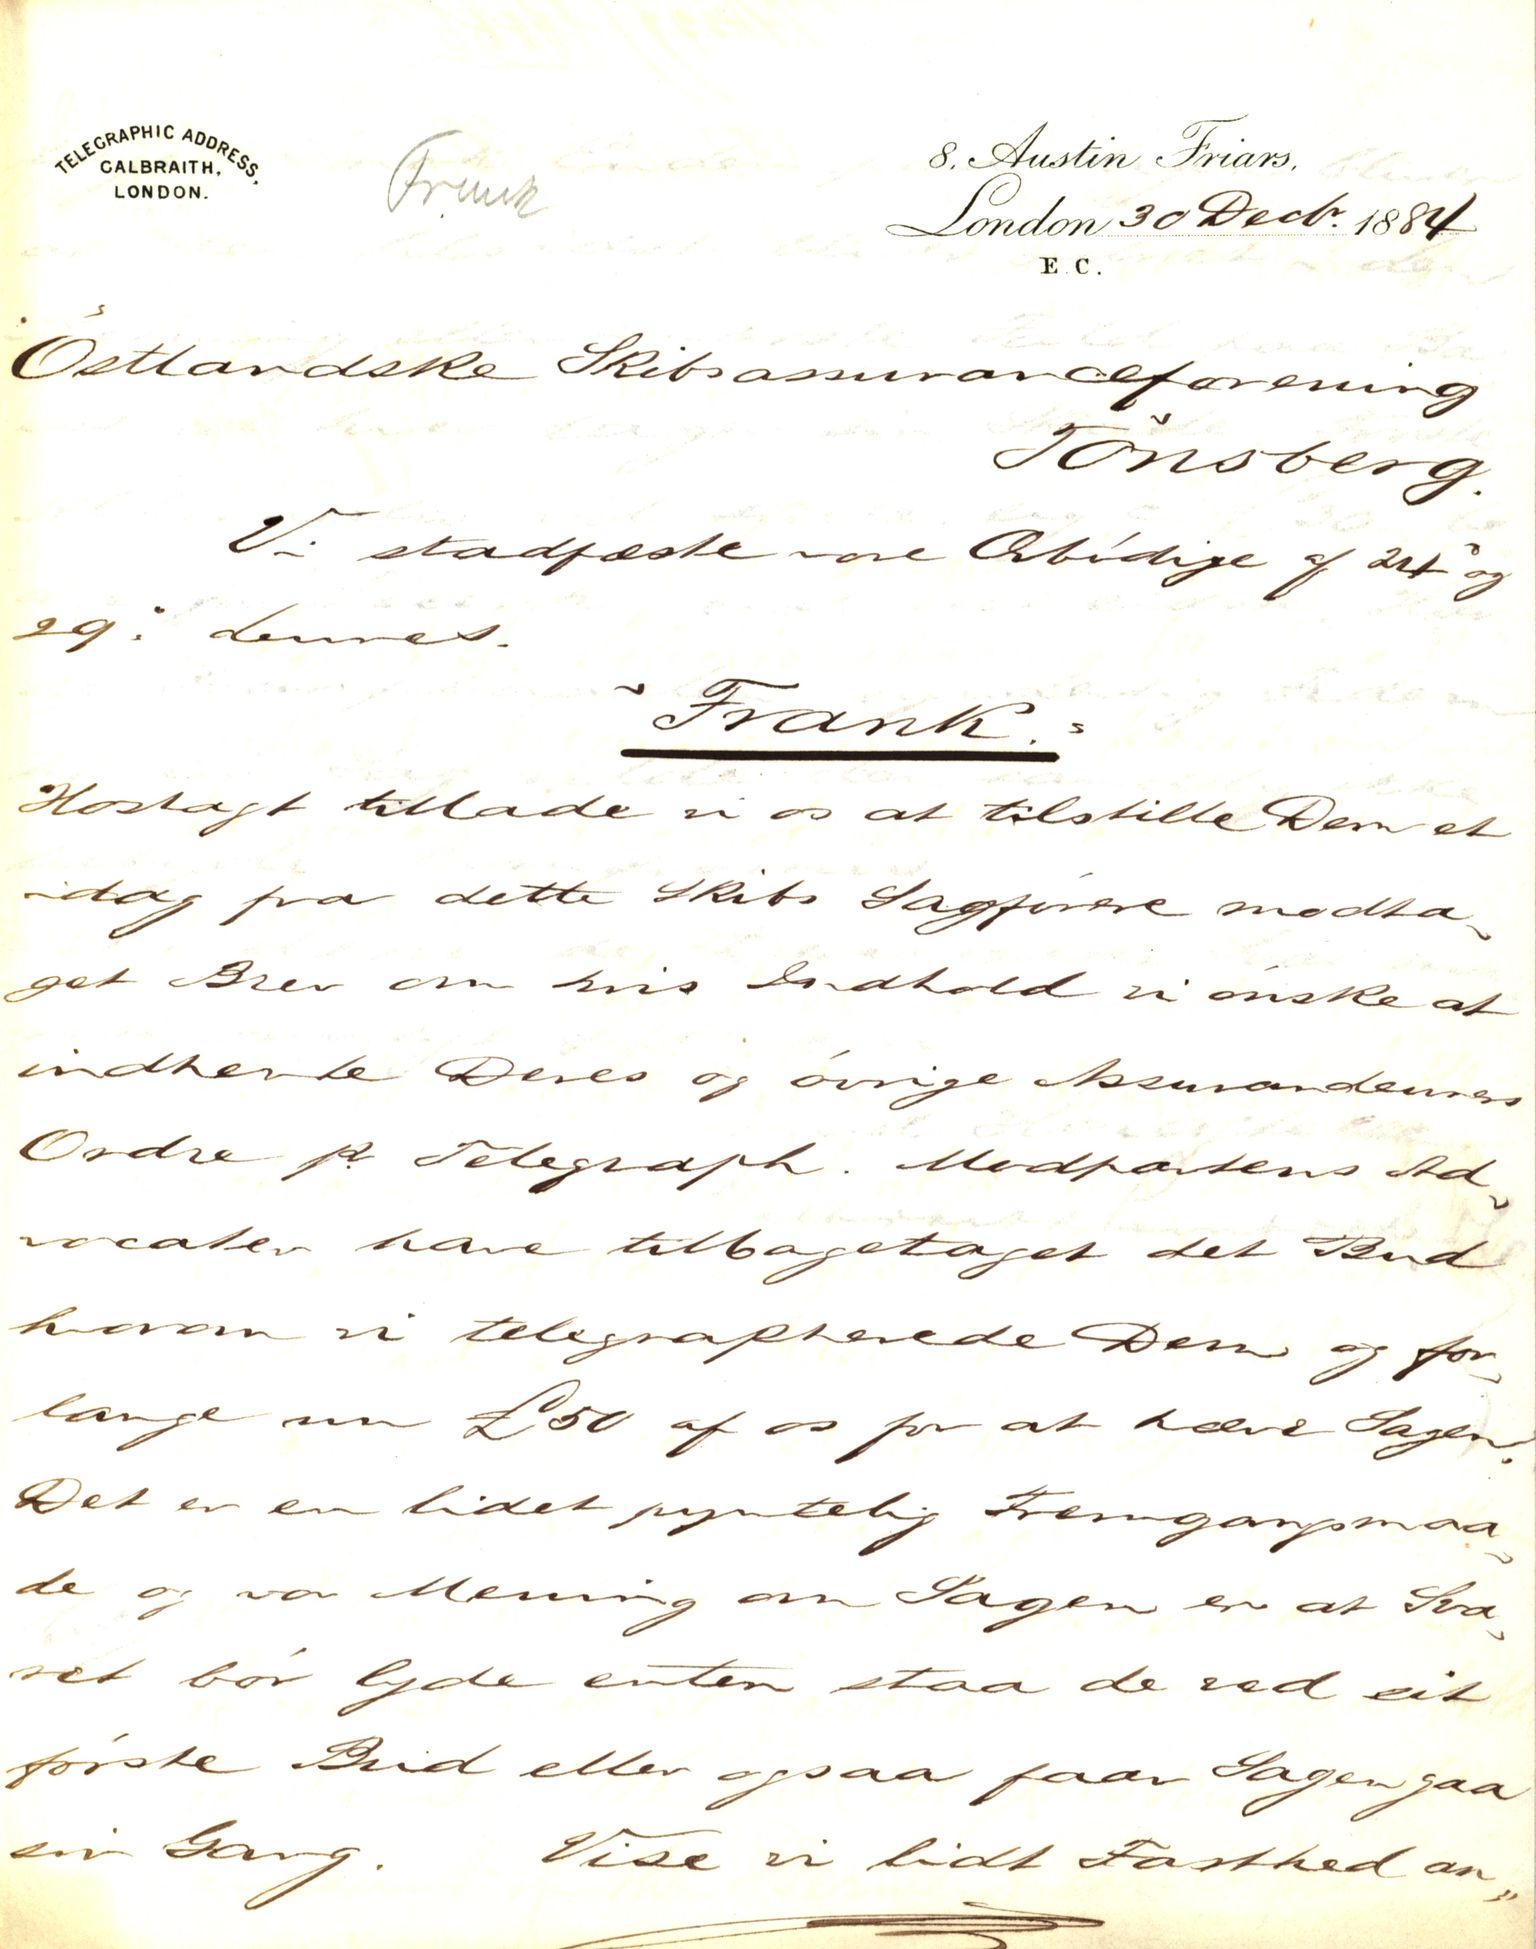 TELEGRAPHIC ADDRESS,
GALBRAITH,
LONDON.
Frank
8, Austin Friars,
London 30 Decbr. 1884
E.C.
Östlandske Skibsassuranceforening
Tönsberg.
Vi stadfæste vore Ærbödige af 24 og
29. dennes.
"Frank."
Hoslagt tillade vi os at tilstille Dem et
idag fra dette Skibs Sagförere modta-
get Brev om hvis Indhold vi önske at
indhente Deres og övrige Assurandeurers
Ordre pr Telegraph. Modpartens Ad-
vocater have tilbagetaget det Bud
hvorom vi telegrapherede Dem og for-
lange nu £50 af os for at hæve Sagen.
Det er en lidet pyntelig Fremgangsmaa-
de og vor Mening om Sagen er at Sva-
ret bör lyde enten staa de ved sit
förste Bud eller ogsaa faar Sagen gaa
sin Gang. Vise vi lidt Fasthed an-